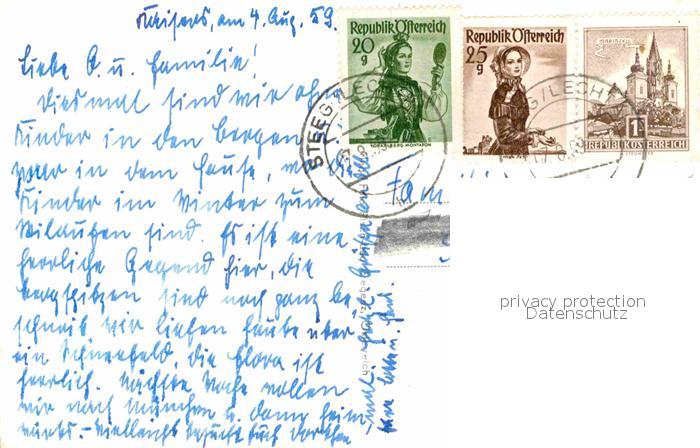 Kaisers, am 4. Aug. 59.
Liebe G. u. Familie!
Diesmal sind wir ohne
Kinder in den Bergen
zwar in dem Hause, wo die
Kinder im Winter zum
Skilaufen sind. Es ist eine
herrliche Gegend hier, die
Bergspitzen sind noch ganz be-
schneit wir liefen heute über
ein Schneefeld, die Flora ist
herrlich. Nächste Woche wollen
wir nach München u. dann heim-
wärts. - Vielleicht besucht Euch Dorothee
Republik Österreich
20
g
VORARLBERG, MONTAFON
Republik Österreich
25
g
MARIAZELL
1
REPUBLIK ÖSTERREICH
STEEG/LECH
G/LECH
Fam
privacy protection
Datenschutz